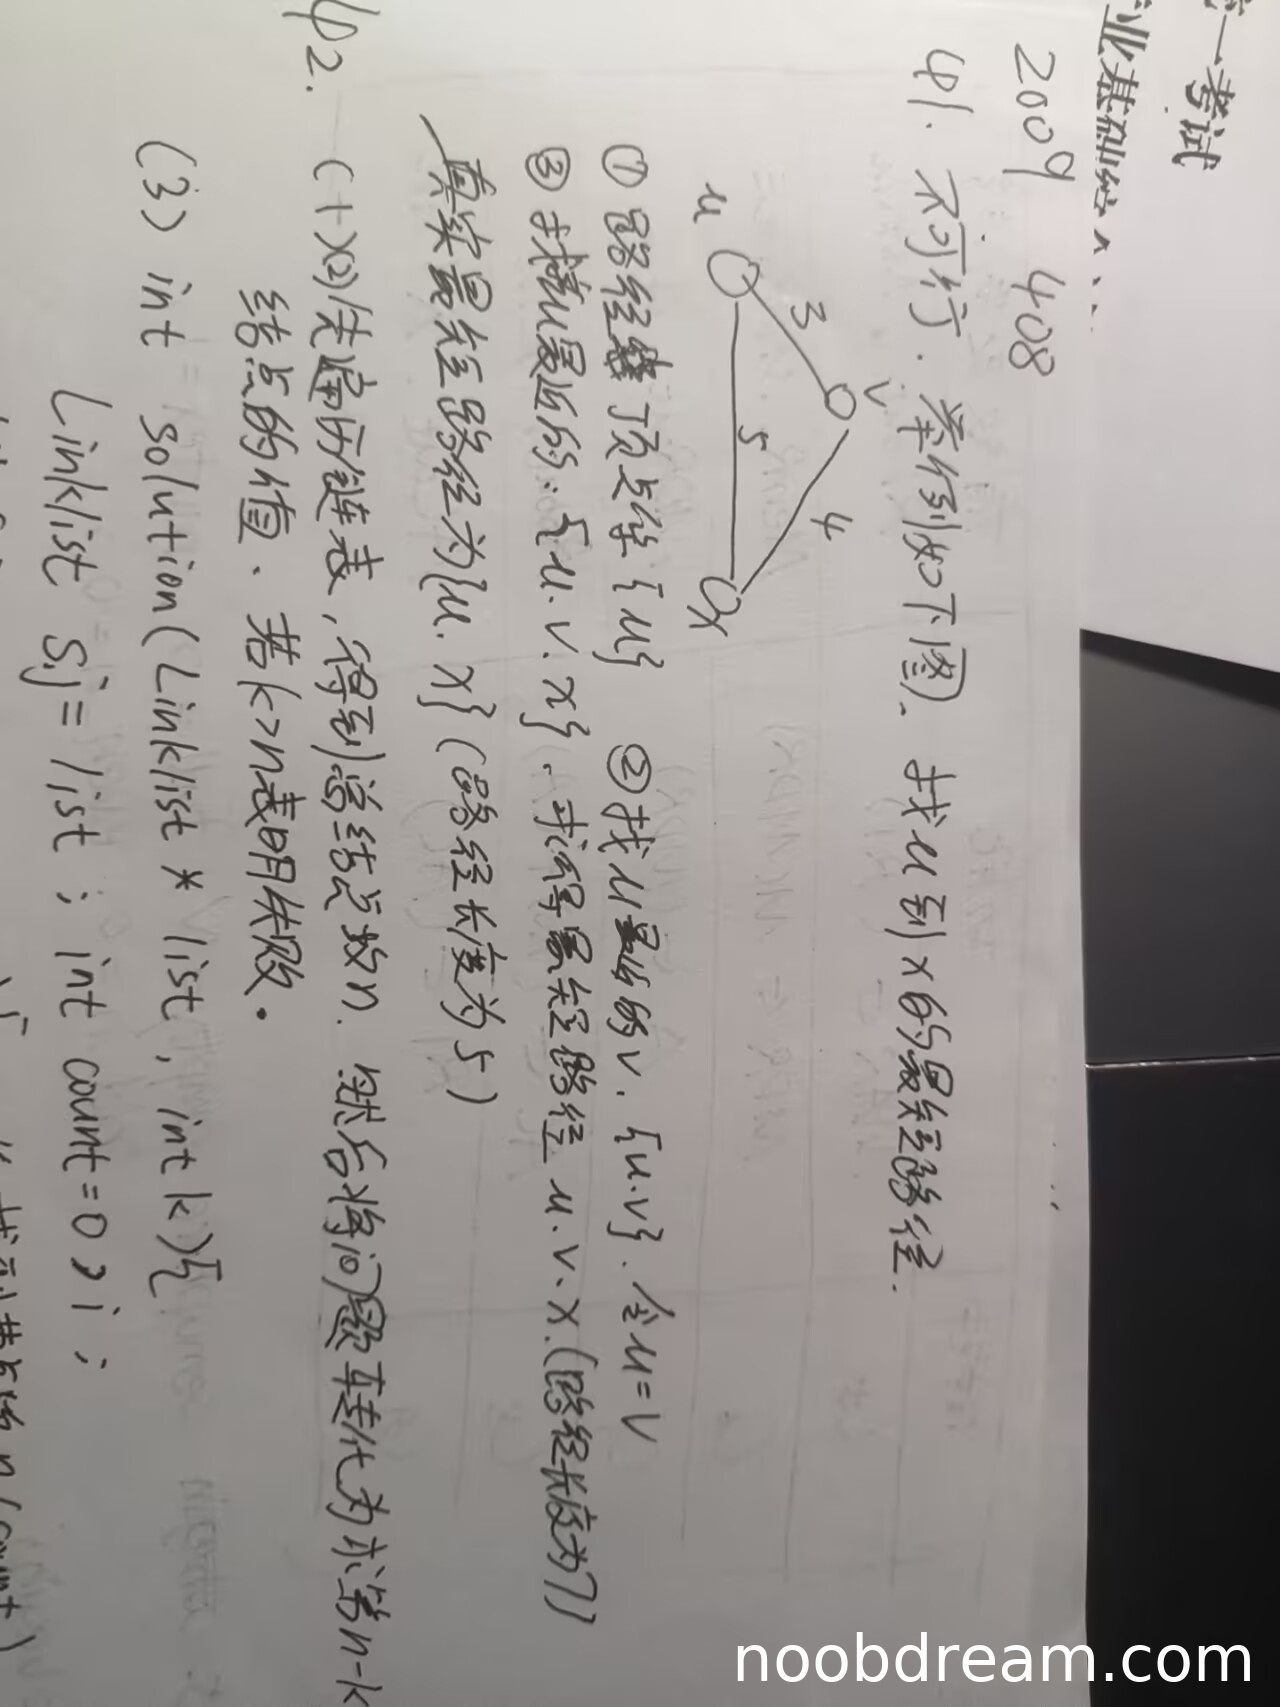 一考试
业基础综合
2009 408
41. 不可行. 举例如下图. 找u到x的最短路径.
u 3 v 4 5 x
① 路经 顶点集{u} ②找u最近的v. {u.v}. 令u=v
③ 找离u最近的. {u.v.x}. 求得最短路径 u.v.x.(路径长度为7)
真实最短路径为{u.x}(路径长度为5)
42. (1)(2)先遍历链表, 得到总结点数n. 然后将问题转化为求第n-k
结点的值. 若k>n表明失败.
(3) int solution(Linklist * list, int k){
Linklist S,j = list; int count=0, i;
noobdream.com